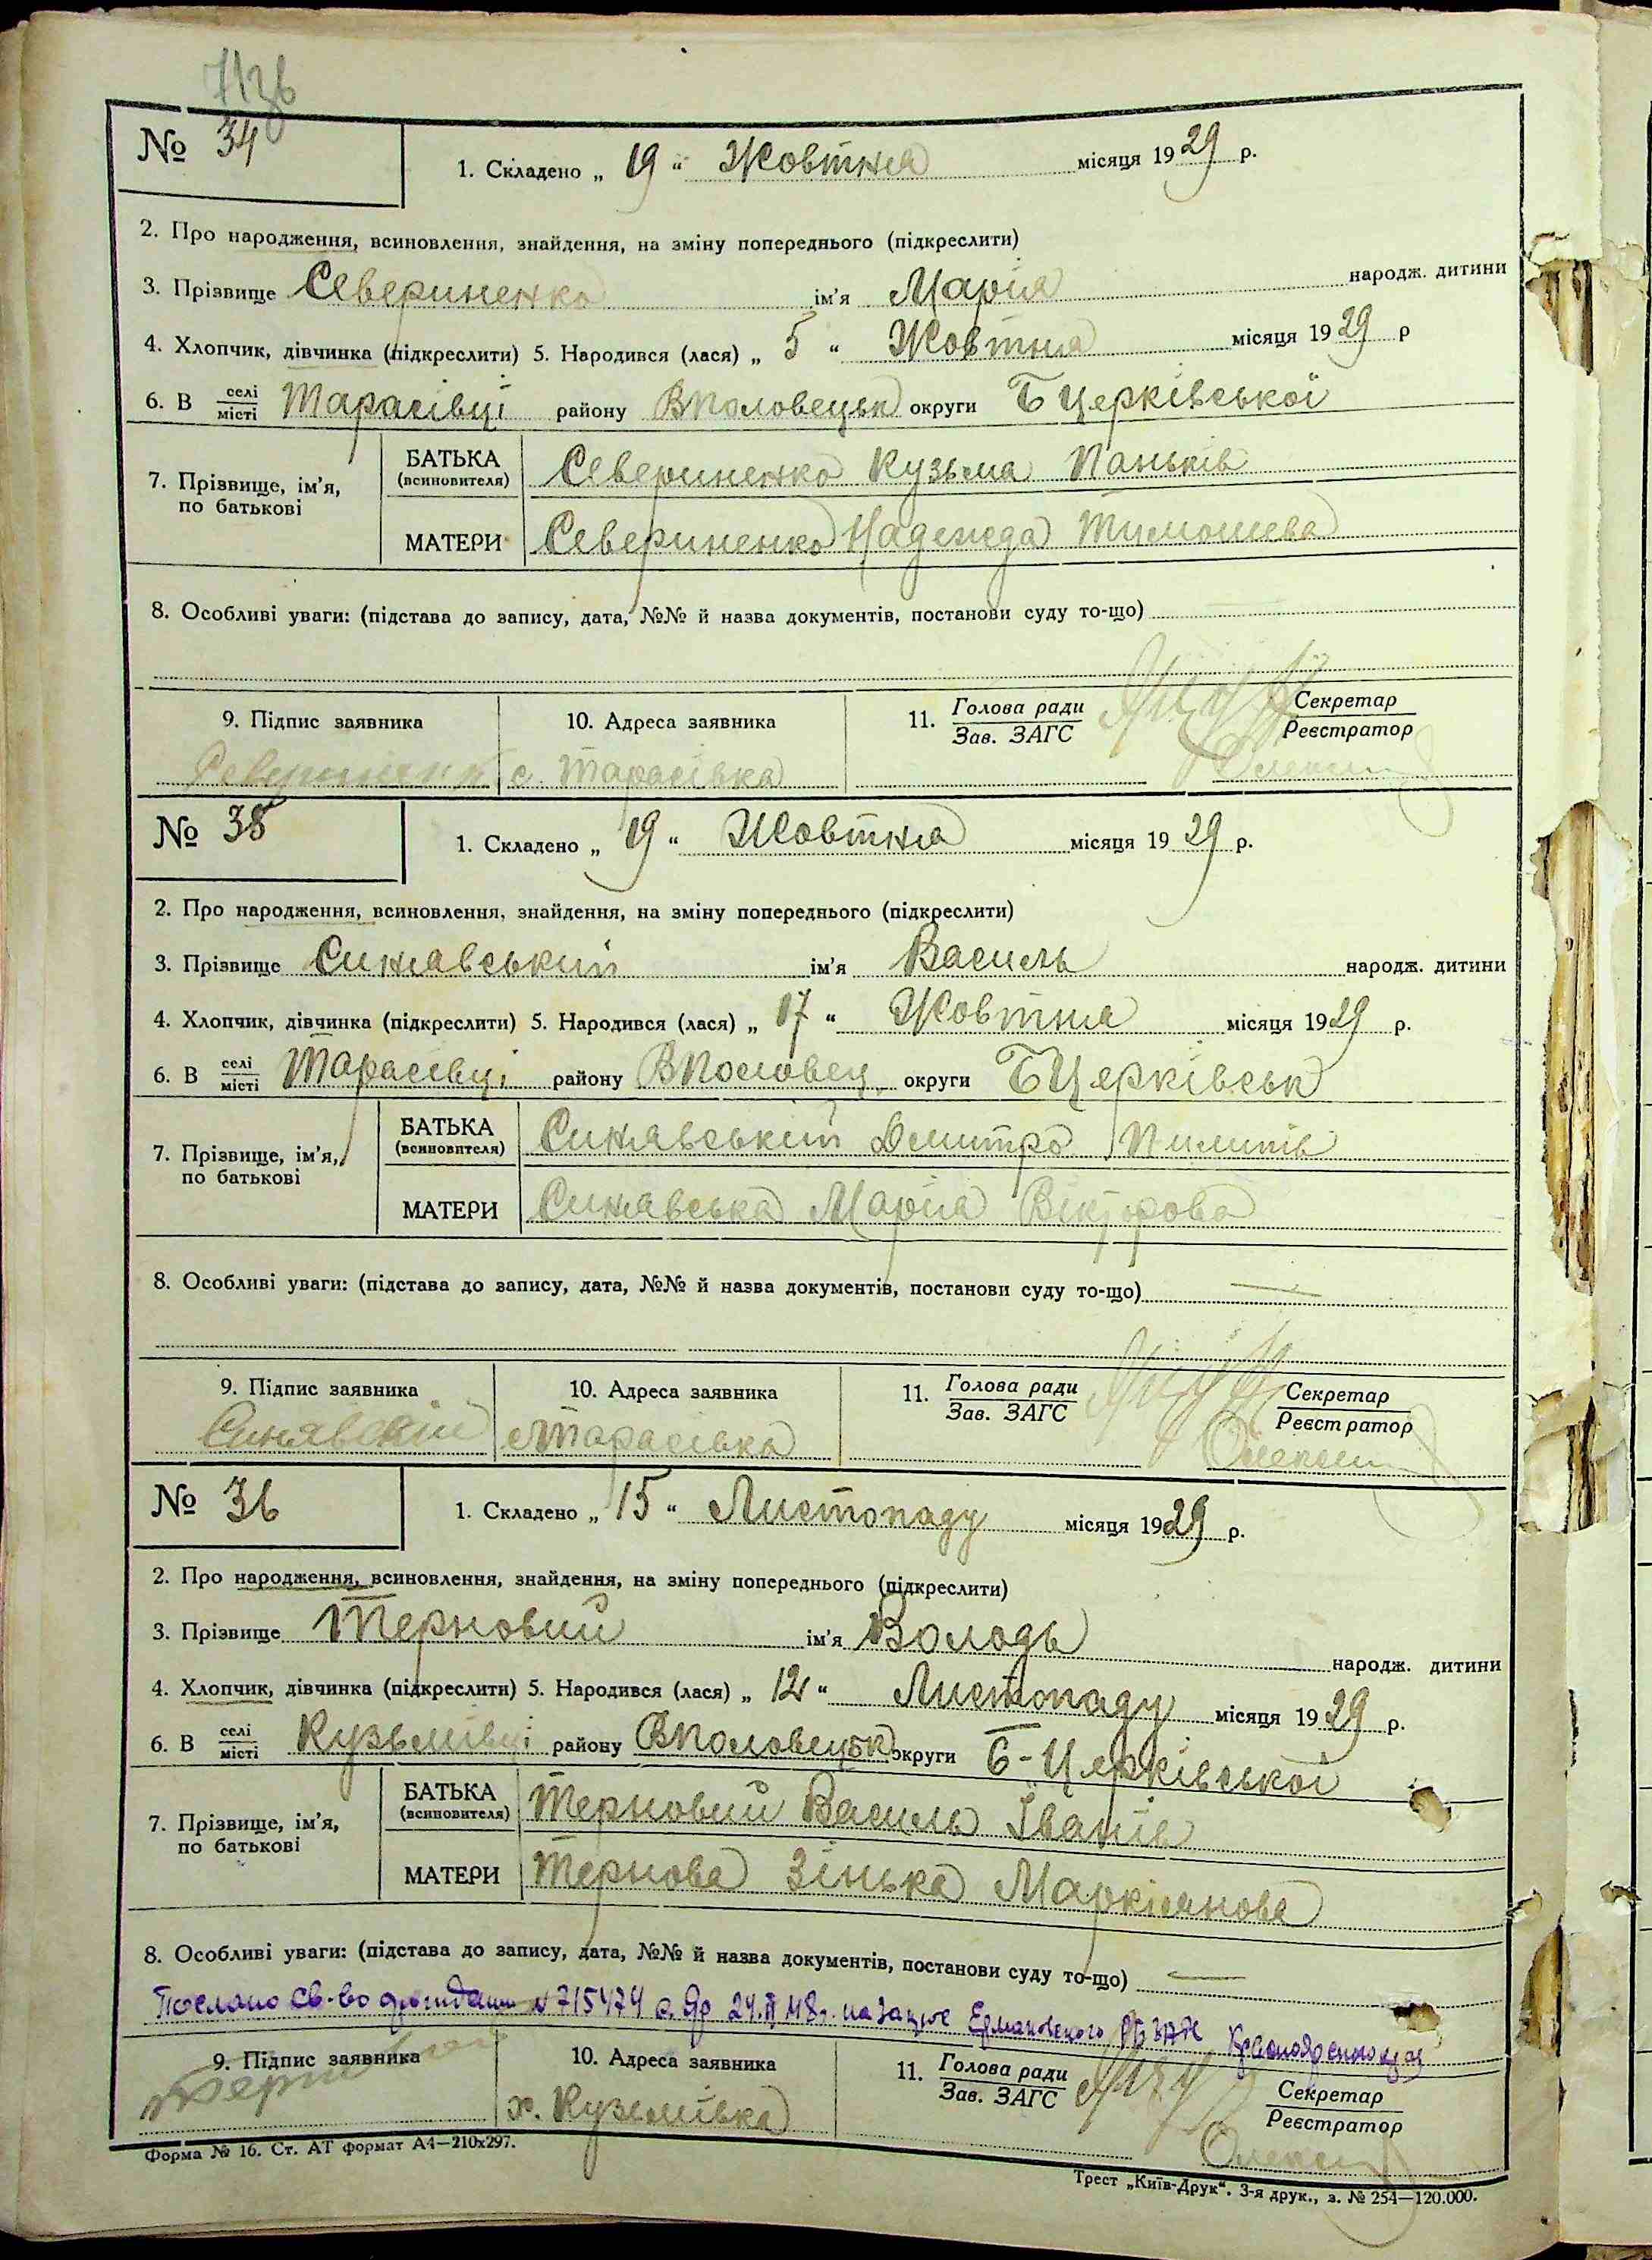 71зв
№ 34
1. Складено „ 19 “ Жовтня місяця 1929 р.
2. Про народження, всиновлення, знайдення, на зміну попереднього (підкреслити)
3. Прізвище Севериненко ім’я Марія народж. дитини
4. Хлопчик, дівчинка (підкреслити) 5. Народився (лася) „ 5 “ Жовтня місяця 1929 р
6. В селі/місті Тарасівці району ВПоловецьк округи БЦерківської
7. Прізвище, ім’я, по батькові
БАТЬКА (всиновителя) Севериненко Кузьма Паньків
МАТЕРИ Севериненко Надежда Тимошева
8. Особливі уваги: (підстава до запису, дата, №№ й назва документів, постанови суду то-що) —
9. Підпис заявника 10. Адреса заявника 11. Голова ради/Зав. ЗАГС Секретар/Реєстратор
с. Тарасівка
№ 35
1. Складено „ 19 “ Жовтня місяця 1929 р.
2. Про народження, всиновлення, знайдення, на зміну попереднього (підкреслити)
3. Прізвище Синявський ім’я Василь народж. дитини
4. Хлопчик, дівчинка (підкреслити) 5. Народився (лася) „ 17 “ Жовтня місяця 1929 р.
6. В селі/місті Тарасівці району ВПоловец округи БЦерківськ
7. Прізвище, ім’я, по батькові
БАТЬКА (всиновителя) Синявський Дмитро Пилипів
МАТЕРИ Синявська Марія Вікторова
8. Особливі уваги: (підстава до запису, дата, №№ й назва документів, постанови суду то-що) —
9. Підпис заявника 10. Адреса заявника 11. Голова ради/Зав. ЗАГС Секретар/Реєстратор
Синявскій с Тарасівка
№ 36
1. Складено „ 15 “ Листопаду місяця 1929 р.
2. Про народження, всиновлення, знайдення, на зміну попереднього (підкреслити)
3. Прізвище Терновий ім’я Володь народж. дитини
4. Хлопчик, дівчинка (підкреслити) 5. Народився (лася) „ 12 “ Листопаду місяця 1929 р.
6. В селі/місті Кузьмівці району ВПоловецьк округи Б-Церківської
7. Прізвище, ім’я, по батькові
БАТЬКА (всиновителя) Терновий Василь Іванів
МАТЕРИ Тернова Зінька Маркіянова
8. Особливі уваги: (підстава до запису, дата, №№ й назва документів, постанови суду то-що) —
Послано св-во N 715474 24.II 48г. на запрос Ермаковского РБ ЗАГС Красноярского края
9. Підпис заявника 10. Адреса заявника 11. Голова ради/Зав. ЗАГС Секретар/Реєстратор
х. Кузьмівка
Форма № 16. Ст. АТ формат А4—210х297.
Трест „Київ-Друк“. 3-я друк., з. № 254—120.000.